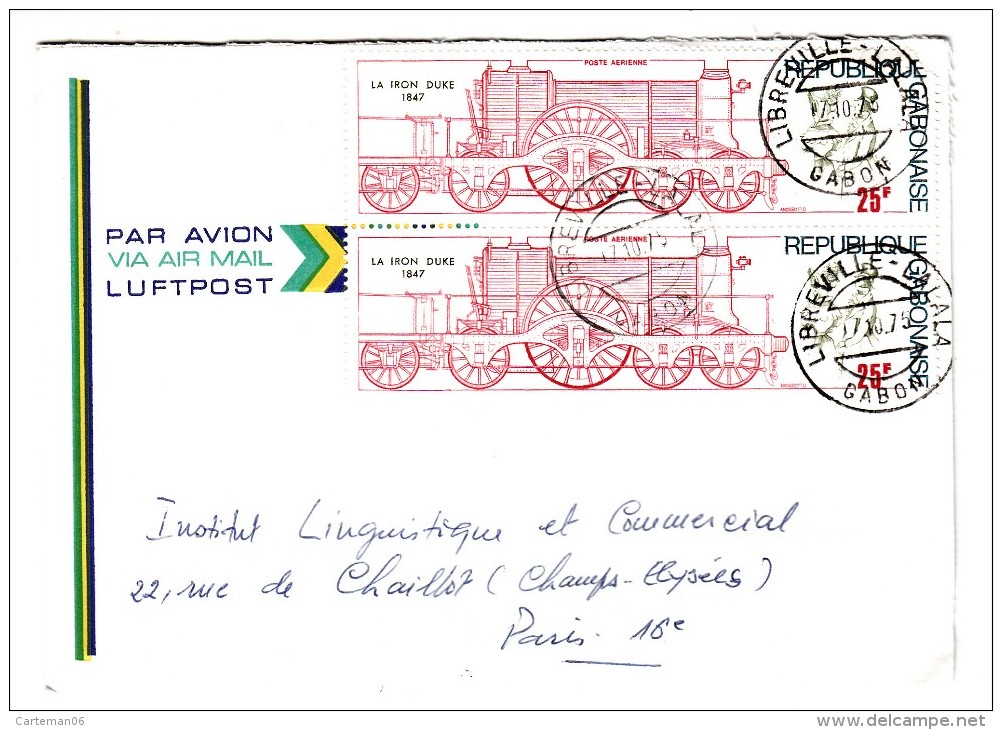 POSTE AERIENNE
LA IRON DUKE
1847
REPUBLIQUE
GABONAISE
25F
LIBREVILLE - LALALA
17.10.75
GABON
PAR AVION
VIA AIR MAIL
LUFTPOST
POSTE AERIENNE
LA IRON DUKE
1847
REPUBLIQUE
GABONAISE
25F
LIBREVILLE - LALALA
17.10.75
GABON
Institut Linguistique et Commercial
22, rue de Chaillot (Champs-Elysées)
Paris. 16e
Carteman06
delcampe.net